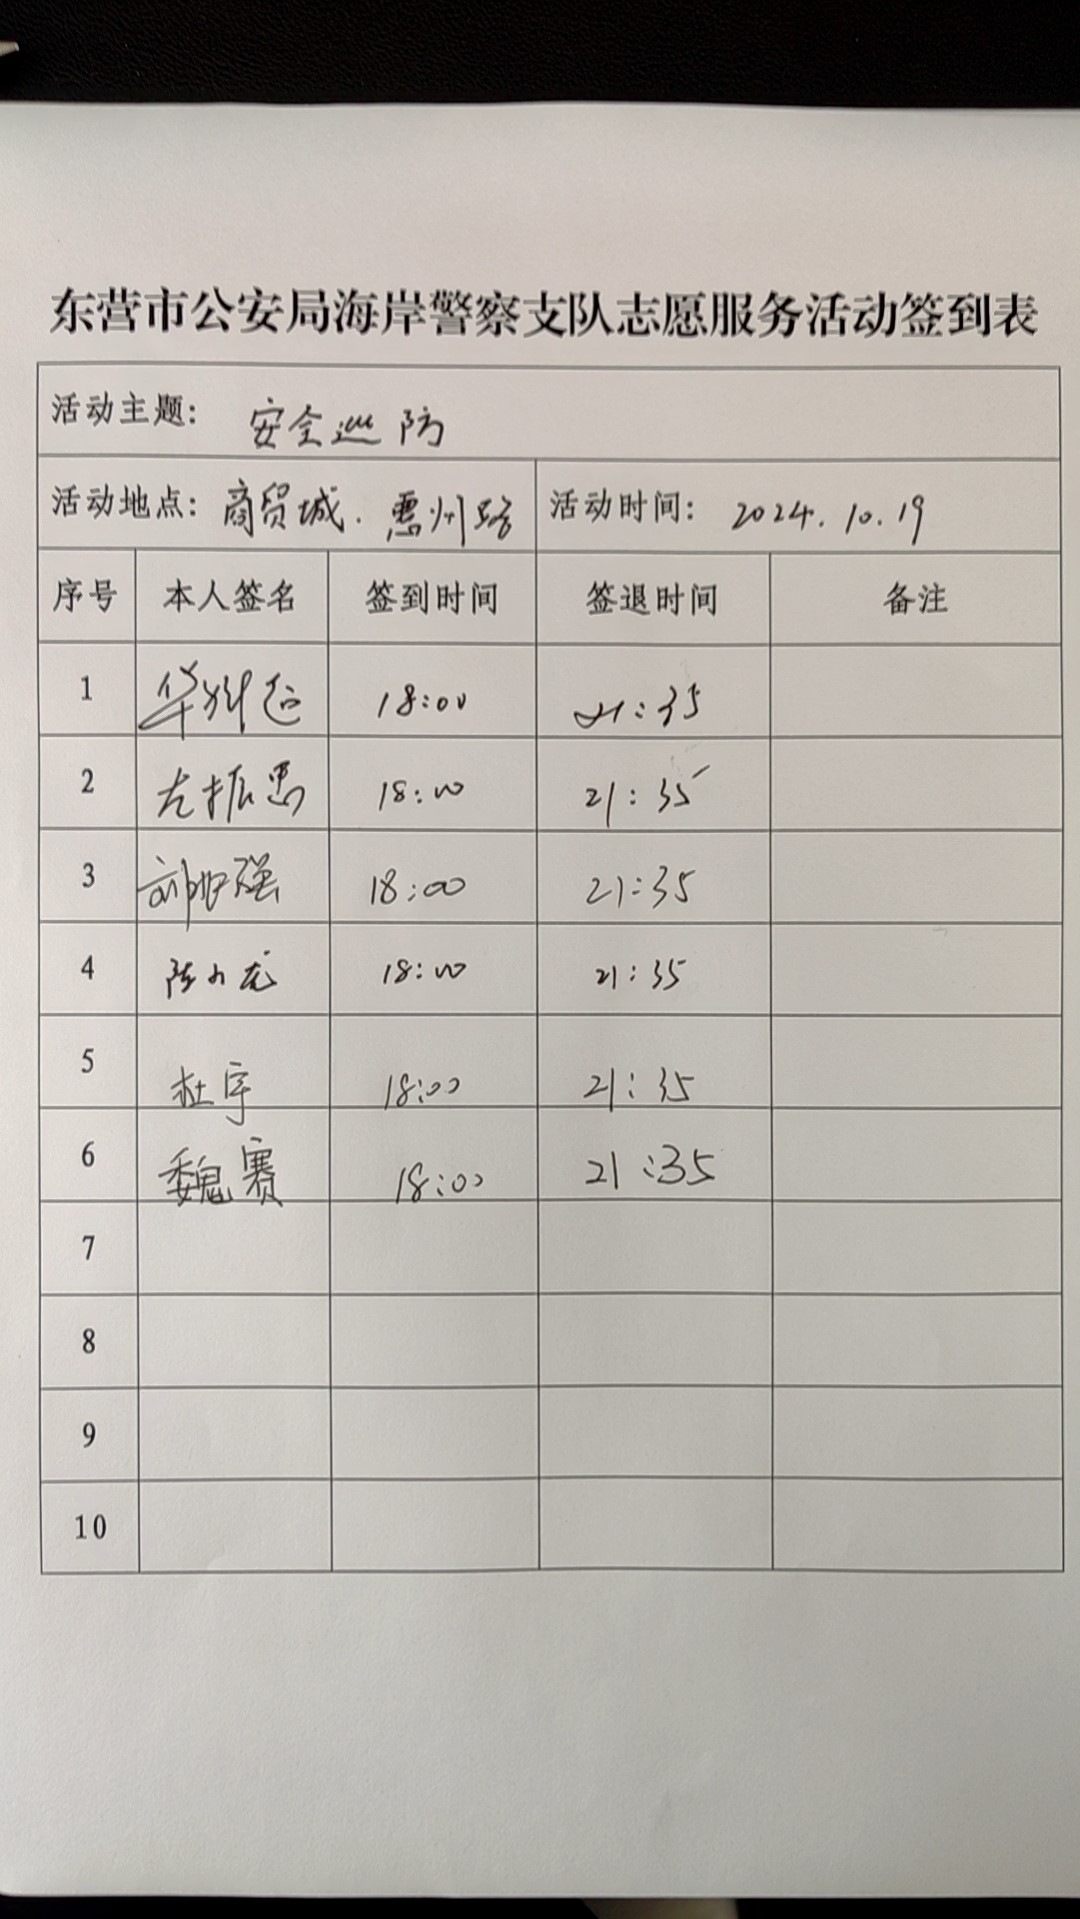 东营市公安局海岸警察支队志愿服务活动签到表
活动主题: 安全巡防
活动地点: 商贸城.惠州路 活动时间: 2024.10.19
序号 本人签名 签到时间 签退时间 备注
1 华 18:00 21:35
2 左振 18:00 21:35
3 强 18:00 21:35
4 陈小龙 18:00 21:35
5 杜宇 18:00 21:35
6 魏赛 18:00 21:35
7
8
9
10